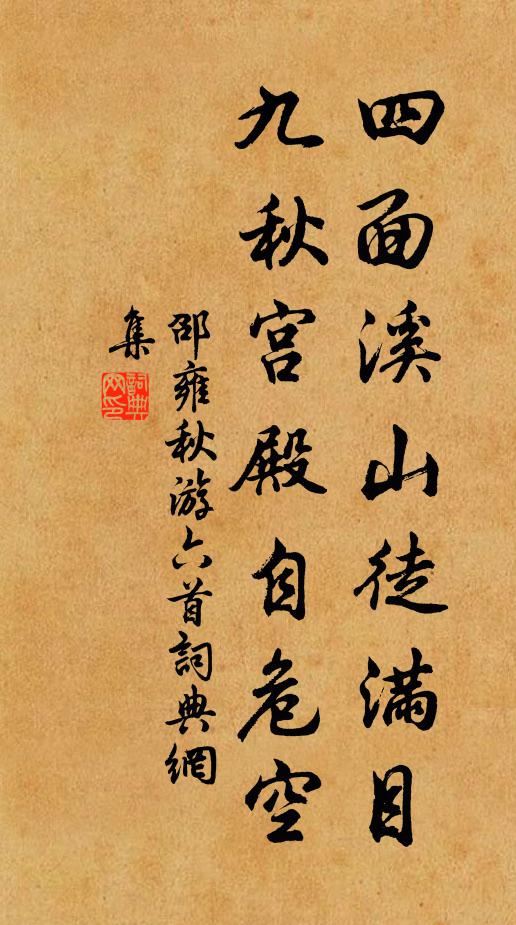 四面溪山徒满目
九秋宫殿自危空
邵雍秋游六首詞典網
集
詞典網印